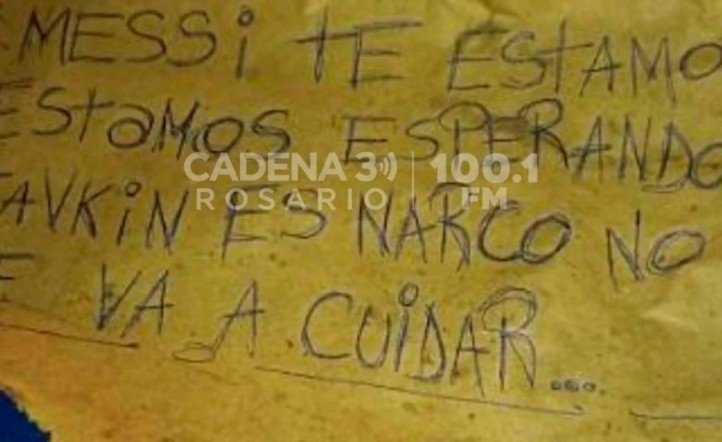 MESSi tE EStAMO
EStaMOS ESPERANDO
CADENA 3 100.1
ROSARIO FM
AVKiN ES NARCO NO
E VA A CUiDAR...